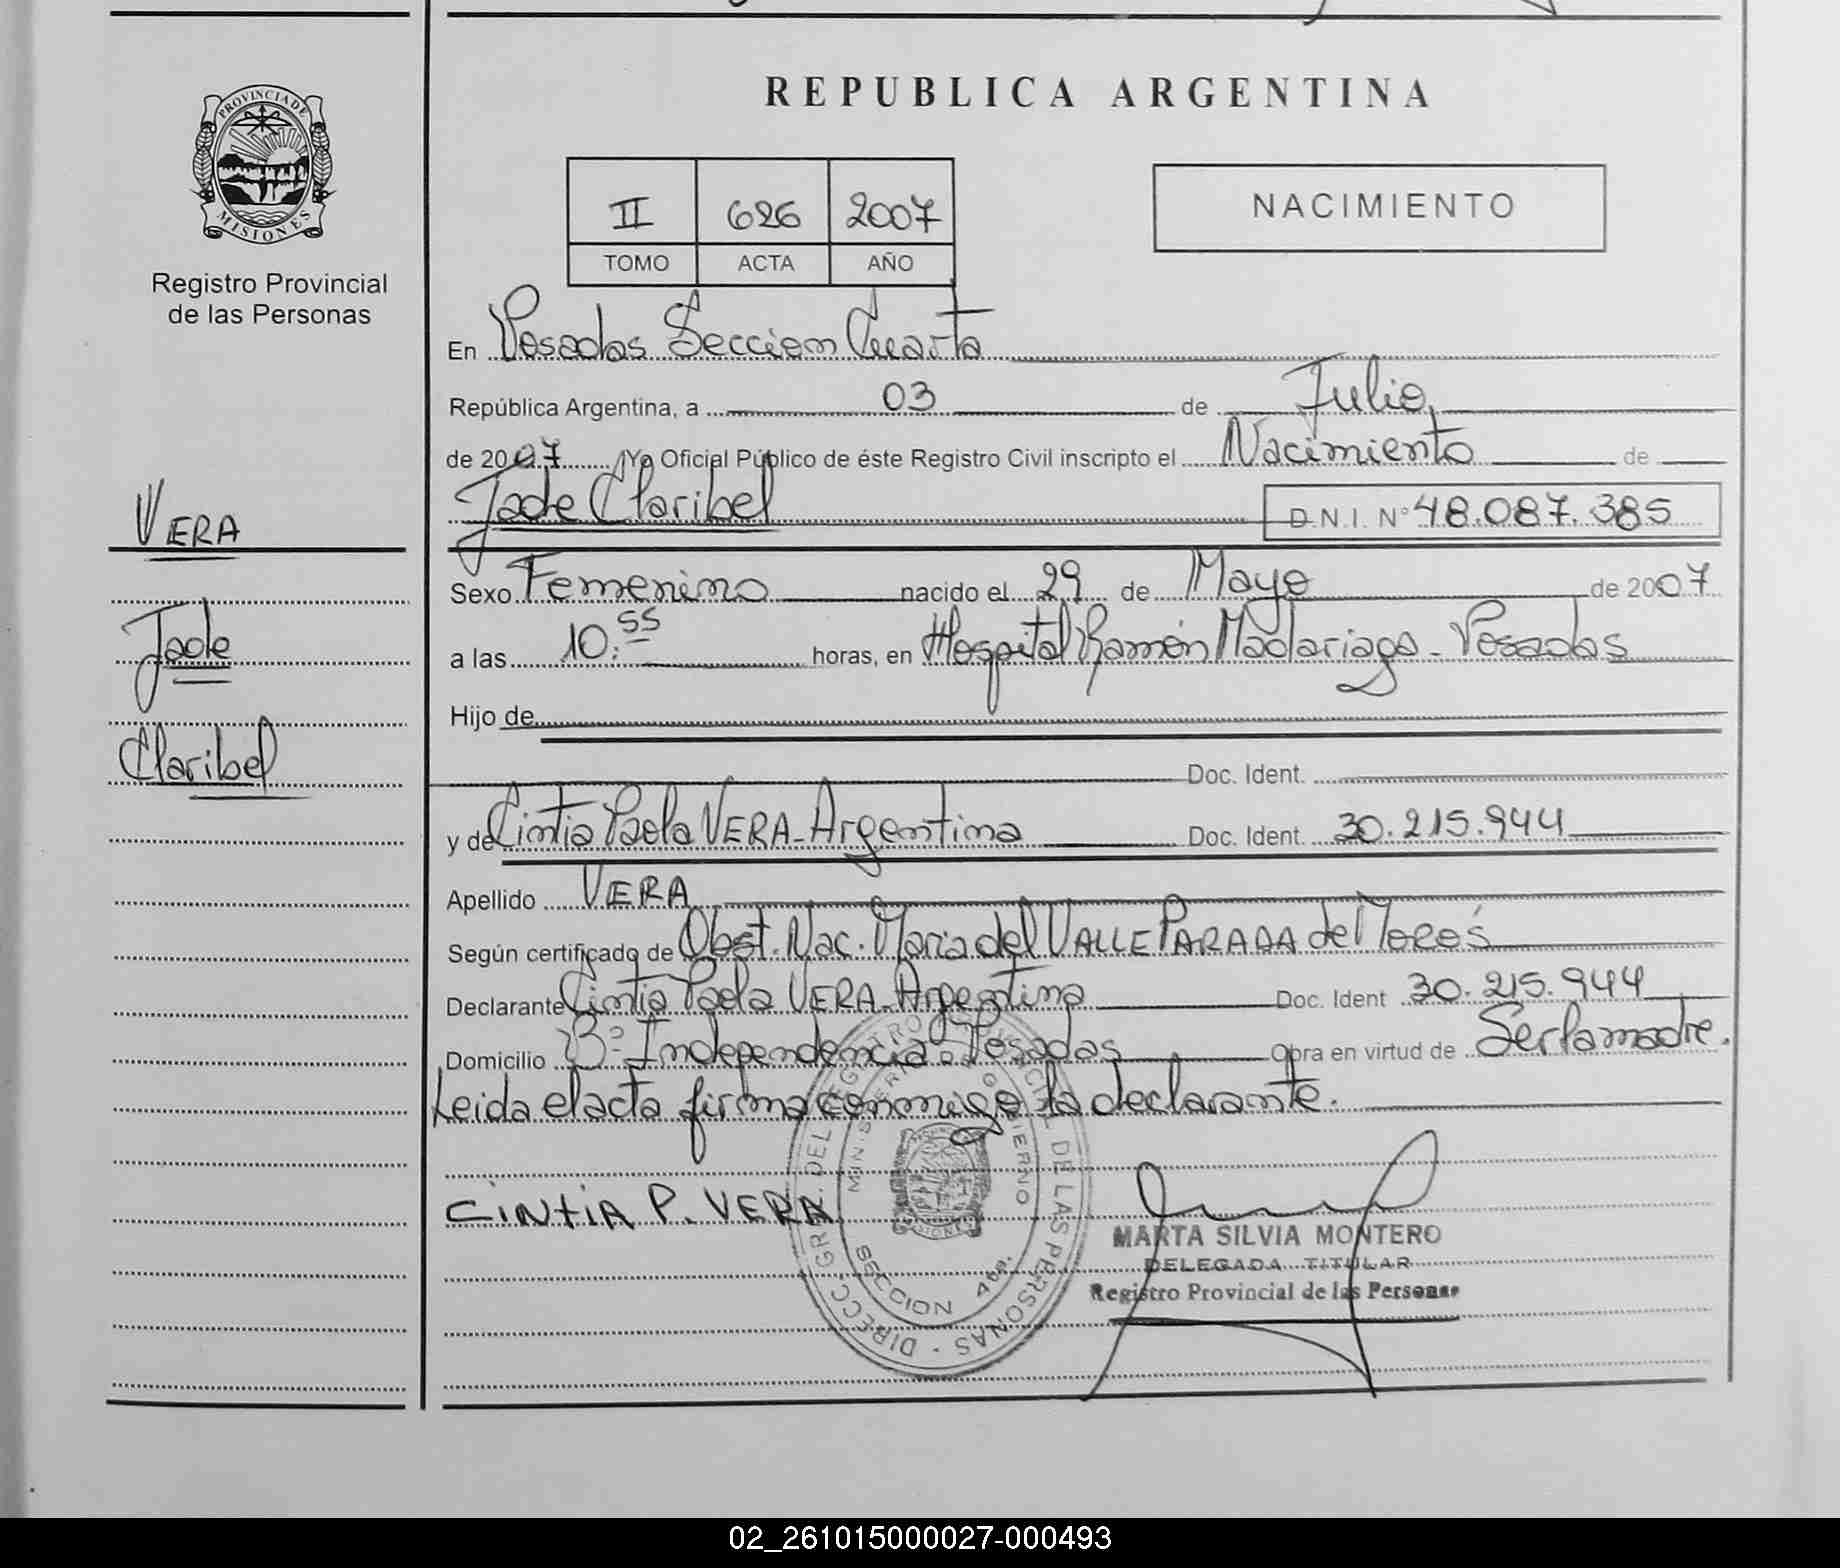 REPUBLICA ARGENTINA
PROVINCIA DE
MISIONES
Registro Provincial
de las Personas
II 626 2007
TOMO ACTA AÑO
NACIMIENTO
En Posadas Seccion Cuarta
República Argentina, a 03 de Julio
de 2007 Yo Oficial Público de éste Registro Civil inscripto el Nacimiento de
Jade Claribel D.N.I. Nº 48.087.385
VERA
Jade
Claribel
Sexo Femenino nacido el 29 de Mayo de 2007
a las 10:55 horas, en Hospital Ramón Madariaga - Posadas
Hijo de
Doc. Ident.
y de Cintia Paola VERA - Argentina Doc. Ident. 30.215.944
Apellido VERA
Según certificado de Obst. Nac. Maria del VALLE PARADA de
Declarante Cintia Paola VERA - Argentina Doc. Ident 30.215.944
Domicilio Bº Independencia - Posadas Obra en virtud de Ser la madre.
Leida el acta firma conmigo la declarante.
CiNtiA P. VERA
DIRECC. GR. DEL REGISTRO PROVINCIAL DE LAS PERSONAS
MINISTERIO DE GOBIERNO
SECCION 4ta.
MARTA SILVIA MONTERO
DELEGADA TITULAR
Registro Provincial de las Personas
02_261015000027-000493